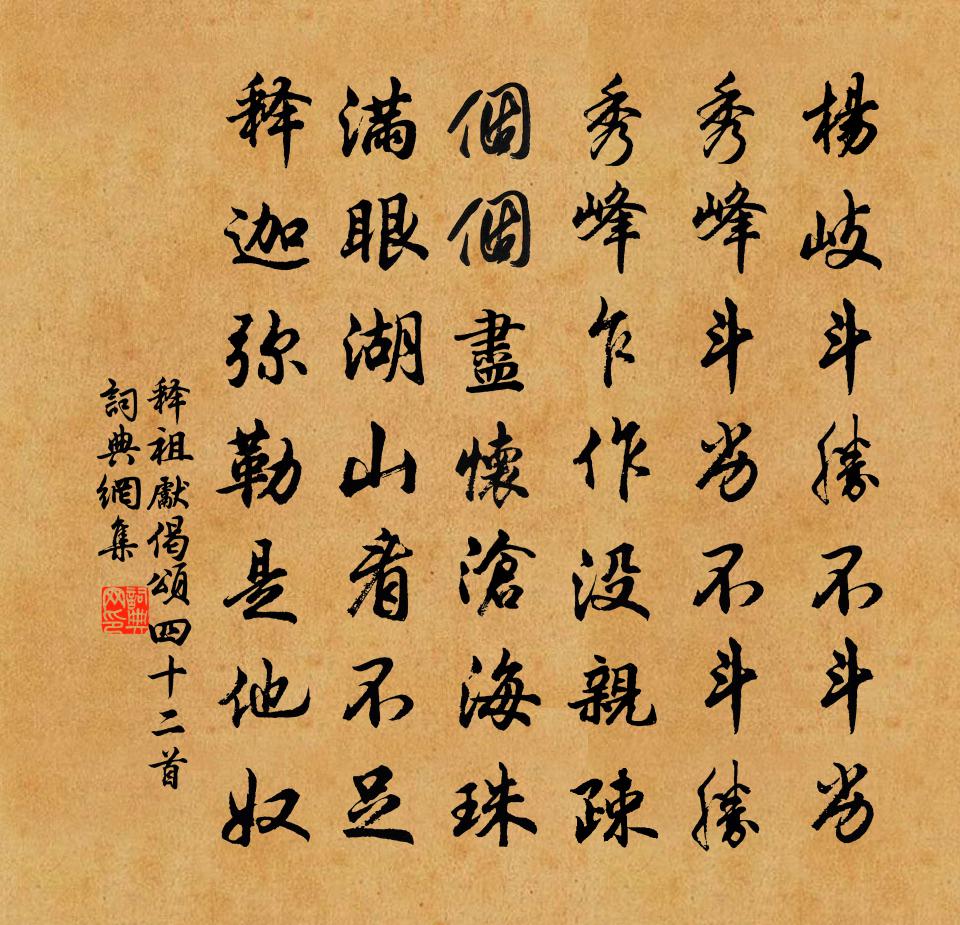 楊岐斗勝不斗劣
秀峰斗劣不斗勝
秀峰乍作没親疎
個個盡懷滄海珠
满眼湖山看不足
释迦弥勒是他奴
释祖獻偈頌四十二首
詞典網集
詞典网印